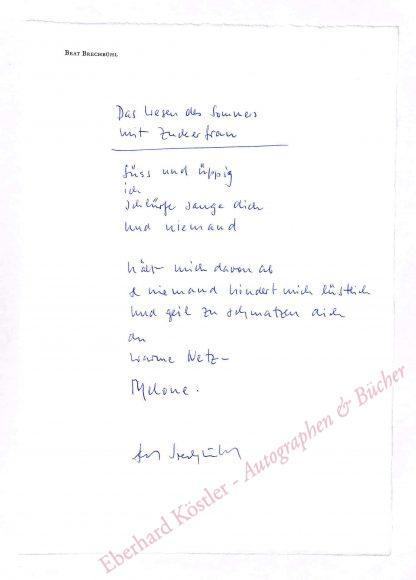 BEAT BRECHBÜHL
Das Wesen des Sommers
mit Zuckerfrau
Süss und üppig
ich
schlürfe sauge dich
und niemand
hält mich davon ab
& niemand hindert mich lüstlich
und geil zu schmatzen dich
du
warme Netz-
Melone.
Eberhard Köstler - Autographen & Bücher